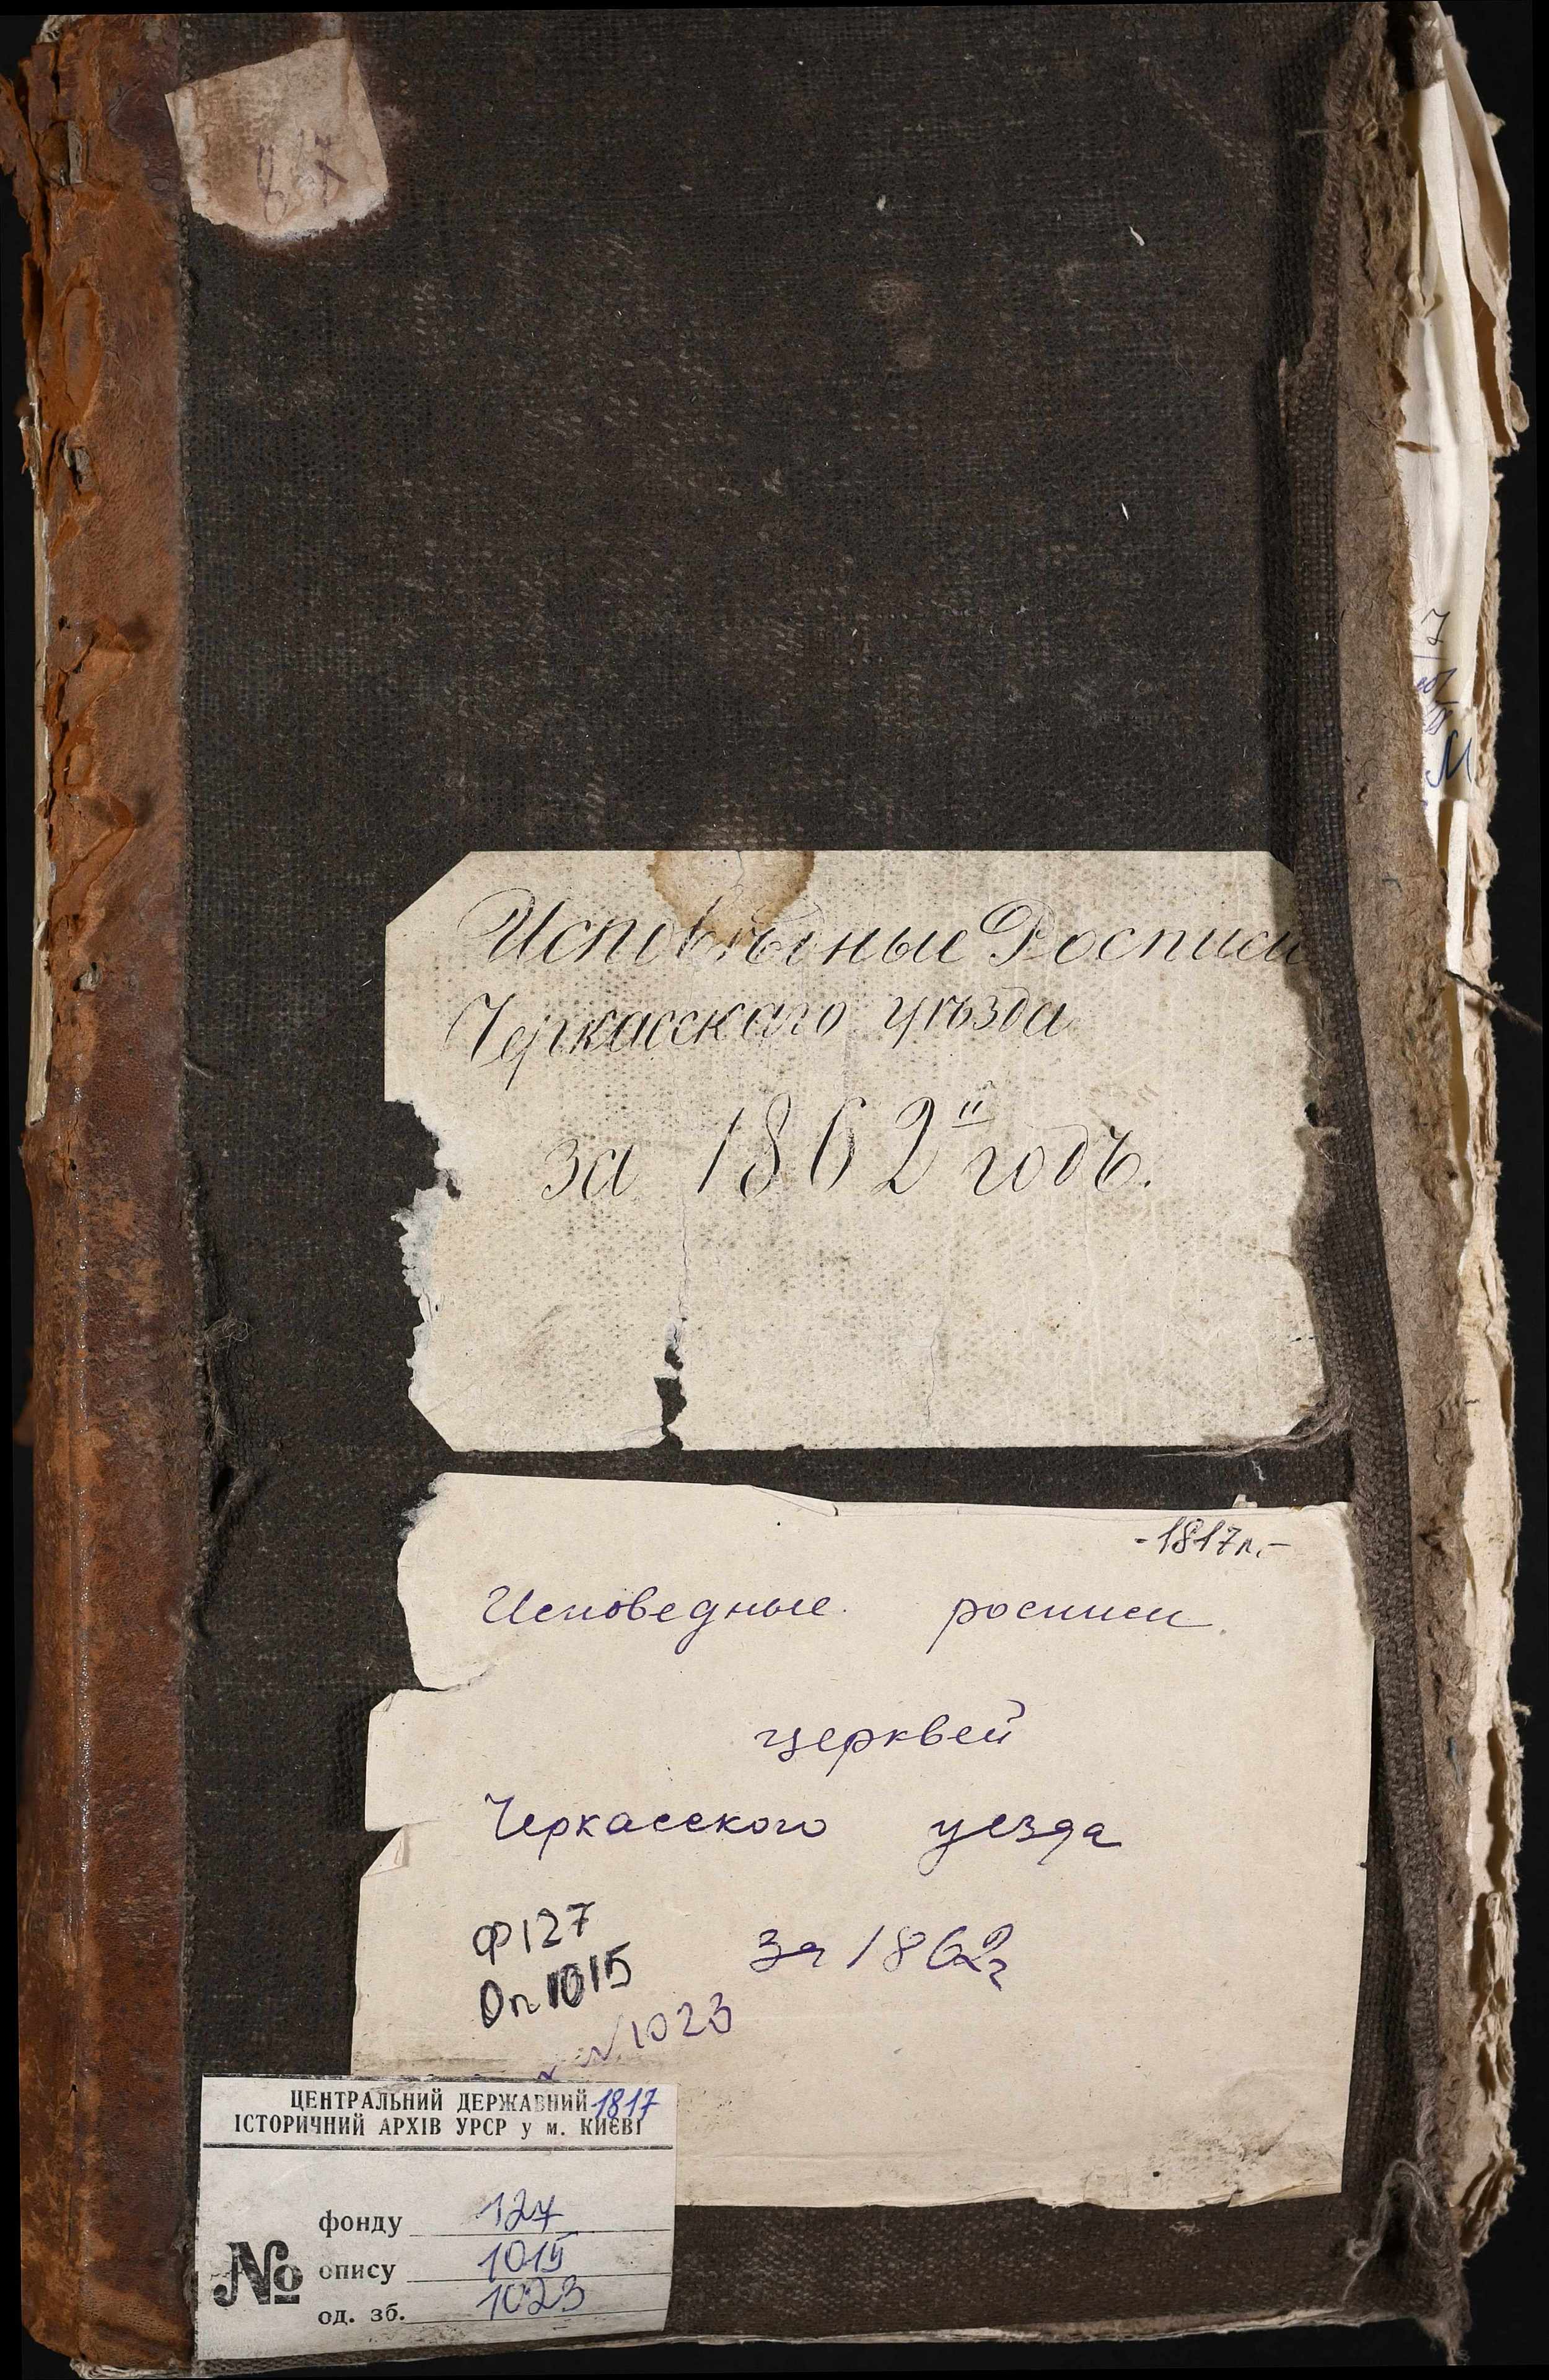 Исповѣдные Росписи
Черкасскаго уѣзда
за 1862й годъ.
-1817л.-
Исповедные росписи
церквей
Черкасского уезда
за 1862г
Ф127
Оп1015
№1023
ЦЕНТРАЛЬНИЙ ДЕРЖАВНИЙ 1817
ІСТОРИЧНИЙ АРХІВ УРСР у м. КИЄВІ
фонду 127
№ опису 1015
од. зб. 1023